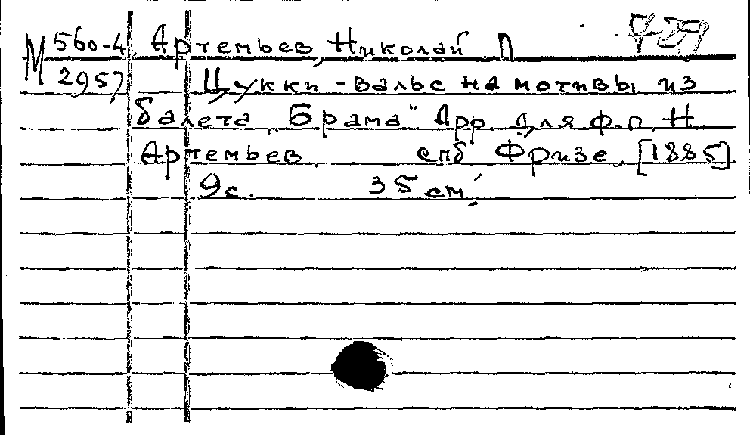 М 560-4 Артемьев, Николай П 429
2957 Цукки-вальс на мотивы из
балета „Брама" Арр. для ф.п. Н
Артемьев. спб Фризе, [1885]
9с. 35 см.